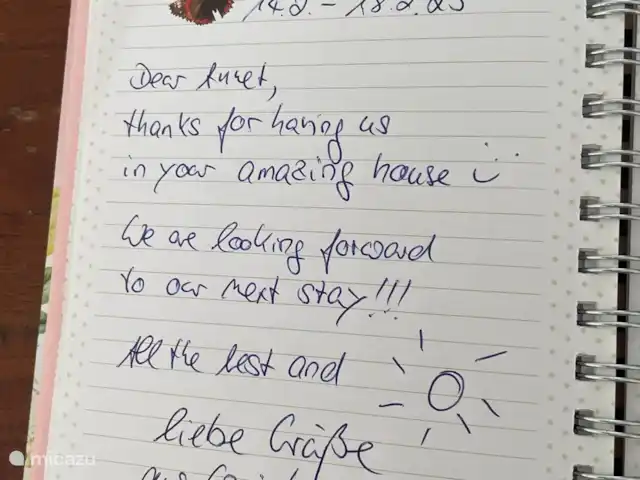 14.2. - 18.2.23
Dear Annet,
thanks for having us
in your amazing house
We are looking forward
to our next stay!!!
All the best and
liebe Grüße
aus
micazu